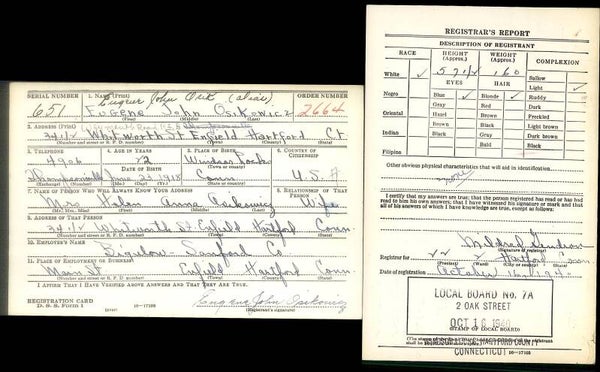 SERIAL NUMBER
1. NAME (Print)
Eugene John Osik (alias)
ORDER NUMBER
651
EUGENE John Osikowicz
2664
(First) (Middle) (Last)
2. ADDRESS (Print)
34 1/2 Whitworth St. Enfield Hartford CT
(Number and street or R. F. D. number) (Town) (County) (State)
3. TELEPHONE
4. AGE IN YEARS
5. PLACE OF BIRTH
6. COUNTRY OF CITIZENSHIP
4906
22
Windsor Locks
DATE OF BIRTH
(Town or county)
Thompsonville June 23 1918
Conn
U.S.A
(Exchange) (Number) (Mo.) (Day) (Yr.) (State or country)
7. NAME OF PERSON WHO WILL ALWAYS KNOW YOUR ADDRESS
8. RELATIONSHIP OF THAT PERSON
Mrs Helen Anna Osikowicz Wife
(Mr., Mrs., Miss) (First) (Middle) (Last)
9. ADDRESS OF THAT PERSON
34 1/2 Whitworth St Enfield Hartford Conn.
(Number and street or R. F. D. number) (Town) (County) (State)
10. EMPLOYER'S NAME
Bigelow Sanford Co
11. PLACE OF EMPLOYMENT OR BUSINESS
Main St Enfield Hartford Conn.
(Number and street or R. F. D. number) (Town) (County) (State)
I AFFIRM THAT I HAVE VERIFIED ABOVE ANSWERS AND THAT THEY ARE TRUE.
REGISTRATION CARD
D. S. S. Form 1
16—17105
Eugene John Osikowicz
(Registrant's signature)
REGISTRAR'S REPORT
DESCRIPTION OF REGISTRANT
RACE
HEIGHT (Approx.)
WEIGHT (Approx.)
COMPLEXION
White ✓
160
Sallow
EYES
HAIR
Light ✓
Negro
Blue ✓
Blonde ✓
Ruddy
Gray
Red
Dark
Oriental
Hazel
Brown
Freckled
Brown
Black
Light brown
Indian
Black
Gray
Dark brown
Bald
Black
Filipino
Other obvious physical characteristics that will aid in identification
none
I certify that my answers are true; that the person registered has read or has had
read to him his own answers; that I have witnessed his signature or mark and that
all of his answers of which I have knowledge are true, except as follows:
Mildred
Registrar for
Hartford Conn.
(Precinct) (Ward) (City or county) (State)
Date of registration October 16, 1940
LOCAL BOARD No. 7A
2 OAK STREET
OCT 16 1940
(STAMP OF LOCAL BOARD)
HARTFORD COUNTY
CONNECTICUT
16—17105